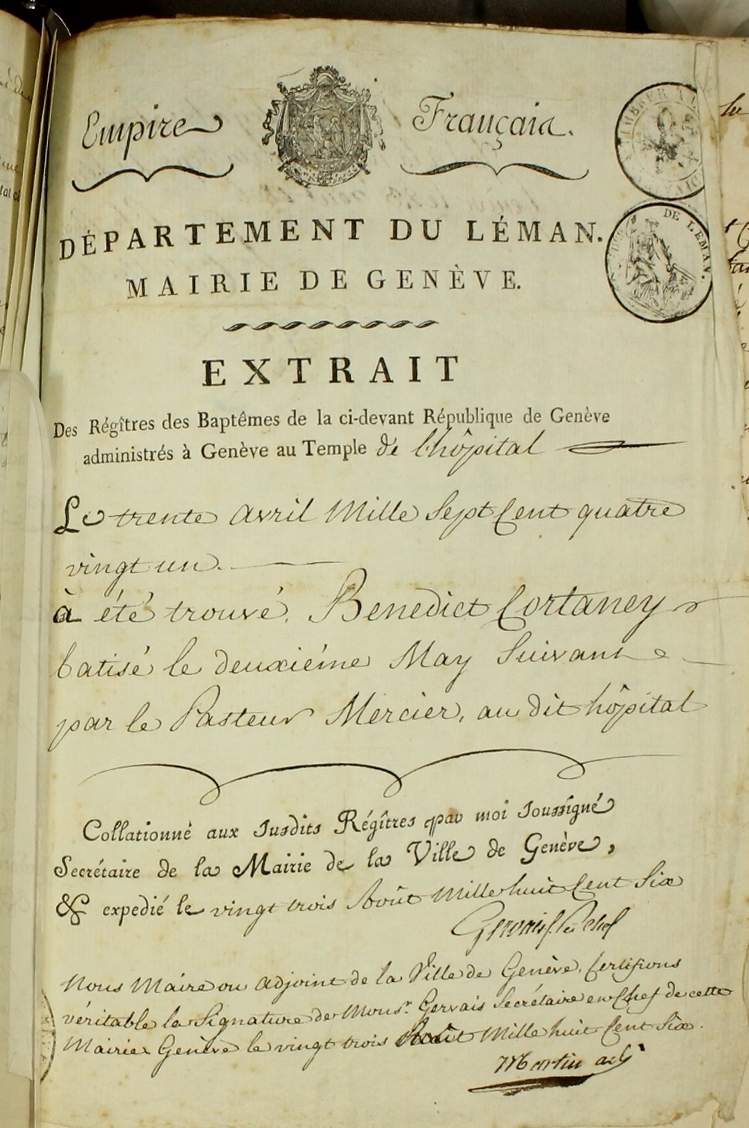 Empire Français.
DE LEMAN.
DÉPARTEMENT DU LÉMAN.
MAIRIE DE GENÈVE.
EXTRAIT
Des Régîtres des Baptêmes de la ci-devant République de Genève
administrés à Genève au Temple de l'hôpital
Le trente Avril Mille Sept Cent quatre
vingt un.
à été trouvé. Benedict Cortaney
batisé le deuxiéme May Suivant
par le Pasteur Mercier, au dit hôpital
Collationné aux susdits Régîtres par moi soussigné
Secrétaire de la Mairie de la Ville de Genève,
& expedié le vingt trois Août Mille huit Cent Six
Gervais
Nous Maire ou adjoint de la Ville de Genève, Certifions
véritable la Signature de Monsr. Gervais Secrétaire en Chef de cette
Mairie Genève le vingt trois Août Mille huit Cent Six.
Martin adj